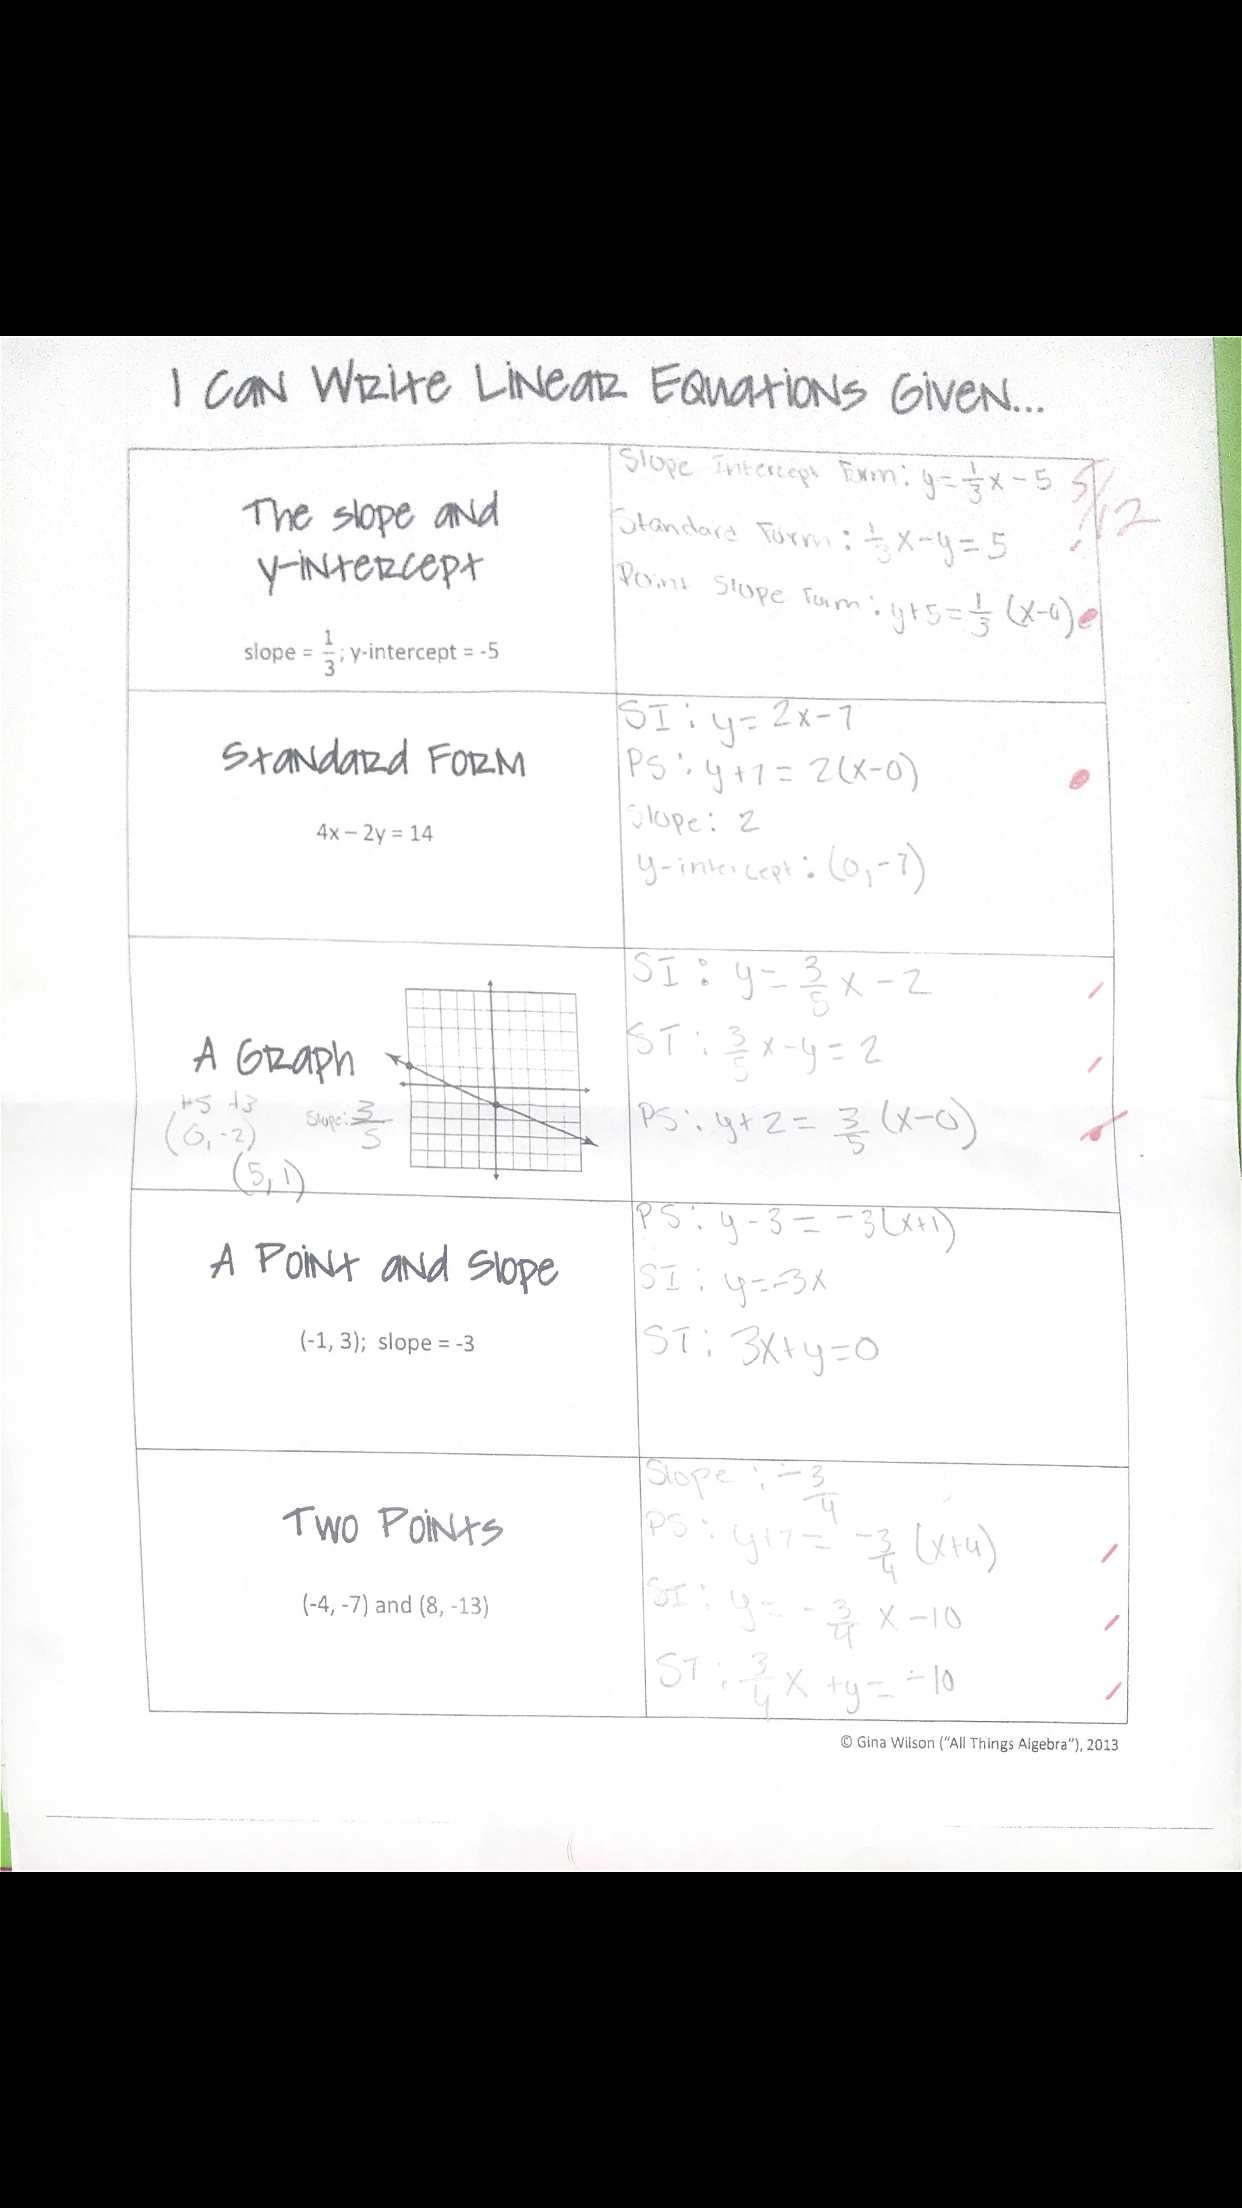 I Can Write Linear Equations Given...
The slope and
y-intercept
slope = 1/3; y-intercept = -5
Slope Intercept Form: y = 1/3 x - 5
5/12
Standard Form: 1/3 x - y = 5
Point Slope Form: y + 5 = 1/3 (x-0)
Standard Form
4x – 2y = 14
SI: y = 2x - 7
PS: y + 7 = 2(x-0)
Slope: 2
y-intercept: (0, -7)
A Graph
+5 +3
(0, -2)
(5, 1)
Slope: 3/5
SI: y = 3/5 x - 2
ST: 3/5 x - y = 2
PS: y + 2 = 3/5 (x-0)
A Point and Slope
(-1, 3); slope = -3
PS: y - 3 = -3(x+1)
SI: y = -3x
ST: 3x + y = 0
Two Points
(-4, -7) and (8, -13)
Slope: -3/4
PS: y + 7 = -3/4 (x+4)
SI: y = -3/4 x - 10
ST: 3/4 x + y = -10
© Gina Wilson ("All Things Algebra"), 2013